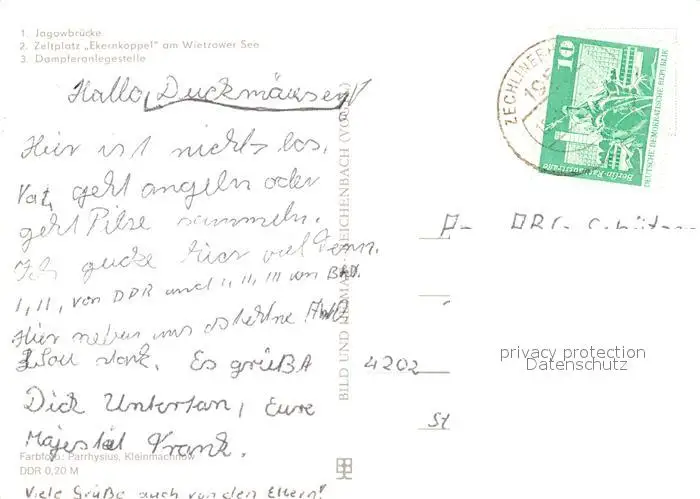 1. Jagowbrücke
2. Zeltplatz „Ekernkoppel" am Wietzower See
3. Dampferanlegestelle
Hallo, Duckmäuser!
Hier ist nichts los.
Vati geht angeln oder
geht Pilze sammeln.
Ich gucke hier viel Fern.
I, II, von DDR und I, II, III von BRD.
Hier neben uns
stark. Es grüßt
Dich Untertan, Eure
Majestät Frank.
Viele Grüße auch von den Eltern!
Farbfoto: Parrhysius, Kleinmachnow
DDR 0,20 M
BILD UND HEIMAT REICHENBACH (VOGTL)
ZECHLINER
10
DEUTSCHE DEMOKRATISCHE REPUBLIK
4202
privacy protection
Datenschutz